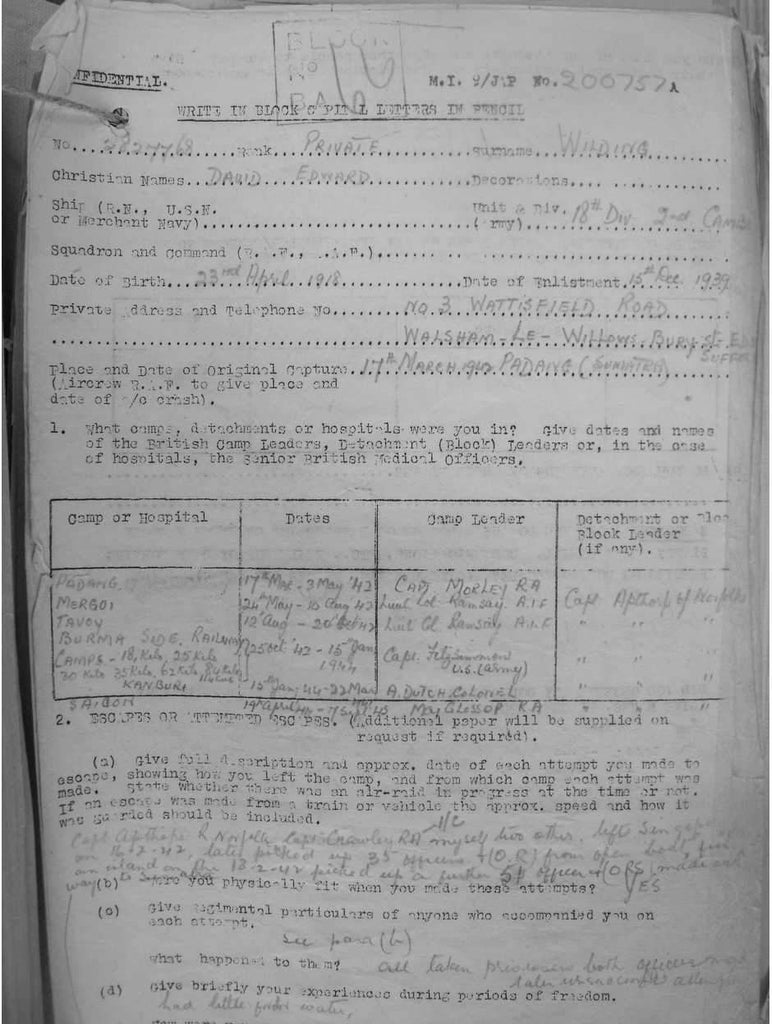 BLOCK
No
BAD
CONFIDENTIAL. M.I. 9/JAP No. 200757A
WRITE IN BLOCK CAPITAL LETTERS IN PENCIL
No.... Rank... PRIVATE... Surname... WILDING...
Christian Names... DAVID EDWARD... Decorations...
Ship (R.N., U.S.N. Unit & Div. 18th Div 2nd CAMBS
or Merchant Navy)... (Army)...
Squadron and Command (R.A.F., A.A.F.)...
Date of Birth... 23rd April 1918... Date of Enlistment. 15th Dec. 1939
Private Address and Telephone No... No. 3 WATTISFIELD ROAD
WALSHAM-LE-WILLOWS, BURY ST. ED
SUFFOL
Place and Date of Original Capture. 17th MARCH 1942 PADANG (SUMATRA)
(Aircrew R.A.F. to give place and
date of a/c crash).
1. What camps, detachments or hospitals were you in? Give dates and names
of the British Camp Leaders, Detachment (Block) Leaders or, in the case
of hospitals, the Senior British Medical Officers.
Camp or Hospital Dates Camp Leader Detachment or Bloc
Block Leader
(if any).
PADANG 17th Mar - 3 May '42 CAPT MORLEY RA
MERGUI 24th May - 10 Aug 42 Lieut Col. Ramsay A.I.F Capt Apthorp of Norfolks
TAVOY 12th Aug - 20 Oct 42 Lieut Col Ramsay A.I.F " " "
BURMA SIDE, RAILWAY 25 Oct '42 - 15th Jan 1944 Capt. Fitzsimmon U.S. (Army) " " "
CAMPS - 18 Kilo, 25 Kilo
30 Kilo 35 Kilo, 62 Kilo 84 Kilo
KANBURI 15th Jan 44 - 22 Mar A. DUTCH COLONEL " "
SAIGON 19th April 44 - Maj GLOSSOP RA " "
2. ESCAPES OR ATTEMPTED ESCAPES. (Additional paper will be supplied on
request if required).
(a) Give full description and approx. date of each attempt you made to
escape, showing how you left the camp, and from which camp each attempt was
made. State whether there was an air-raid in progress at the time or not.
If an escape was made from a train or vehicle the approx. speed and how it
was guarded should be included.
Capt Apthorpe R Norfolks Capt Crawley RA myself two other. left Singap
on 16-2-42, later picked up 35 officers + (O.R) from open boat,
an island on the 18-2-42 picked up a further 51 officer + (ORS)
way to
(b) Were you physically fit when you made these attempts? YES
(c) Give Regimental particulars of anyone who accompanied you on
each attempt.
See para (b)
What happened to them? all taken prisoners both officers
(d) Give briefly your experiences during periods of freedom.
had little food or water,